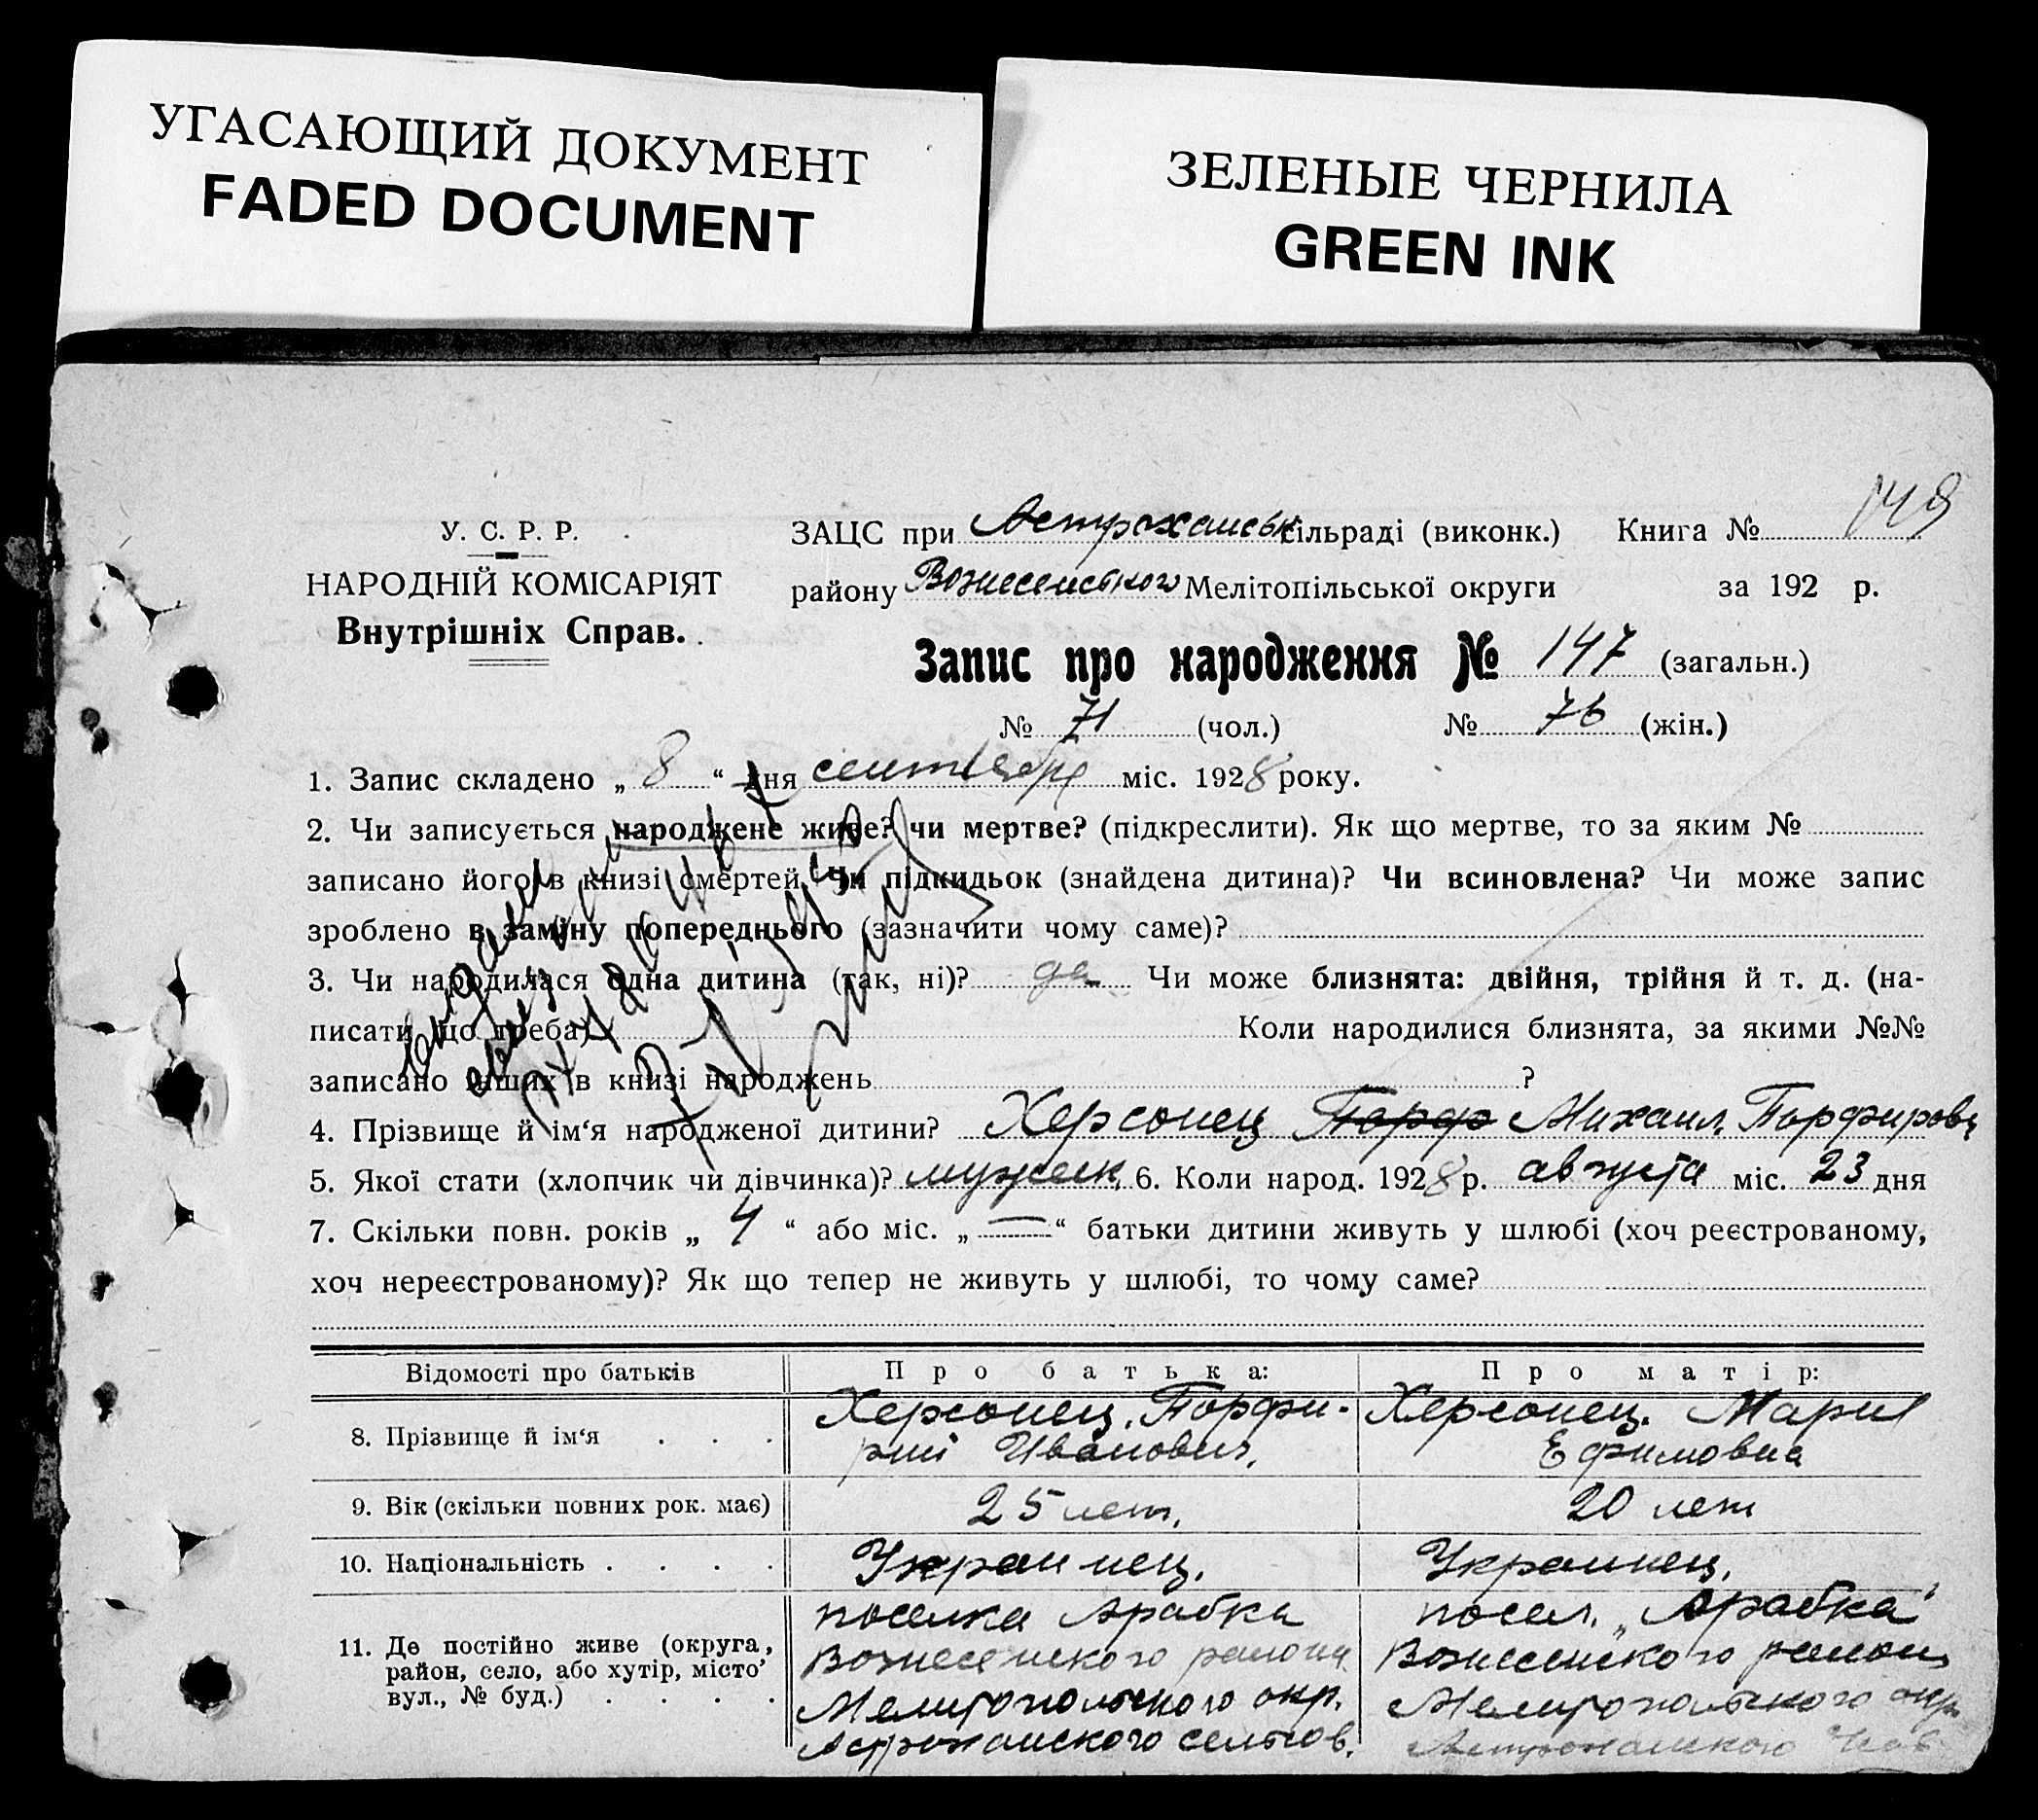 УГАСАЮЩИЙ ДОКУМЕНТ
FADED DOCUMENT
ЗЕЛЕНЫЕ ЧЕРНИЛА
GREEN INK
149
У. С. Р. Р.
НАРОДНІЙ КОМІСАРІЯТ
Внутрішніх Справ.
ЗАЦС при Астраханськ сільраді (виконк.) Книга №
району Вознесенского Мелітопільської округи за 192 р.
Запис про народження № 147 (загальн.)
№ 71 (чол.) № 76 (жін.)
1. Запис складено „ 8 “ дня сентября міс. 1928 року.
2. Чи записується народжене живе? чи мертве? (підкреслити). Як що мертве, то за яким №
записано його в книзі смертей. Чи підкидьок (знайдена дитина)? Чи всиновлена? Чи може запис
зроблено в заміну попереднього (зазначити чому саме)?
3. Чи народилася одна дитина (так, ні)? да Чи може близнята: двійня, трійня й т. д. (на-
писати що треба) Коли народилися близнята, за якими №№
записано інших в книзі народжень ?
4. Прізвище й ім‘я народженої дитини? Херсонец Порф Михаил Порфиров
5. Якої стати (хлопчик чи дівчинка)? мужск. 6. Коли народ. 1928 р. августа міс. 23 дня
7. Скільки повн. років „ 4 “ або міс. „ — “ батьки дитини живуть у шлюбі (хоч реєстрованому,
хоч нереєстрованому)? Як що тепер не живуть у шлюбі, то чому саме?
Відомості про батьків Про батька: Про матір:
8. Прізвище й ім‘я . . . Херсонец, Порфи- Херсонец. Мария
рий Иванович, Ефимовна
9. Вік (скільки повних рок. має) 25 лет, 20 лет
10. Національність . . . . Украинец. Украинец.
11. Де постійно живе (округа, район, село, або хутір, місто, вул., № буд.) . . . .
поселка Арабка
Вознесенского района
Мелитопольского окр.
Астраханского сельсов.
посел. „Арабка“
Вознесенского района
Мелитопольского окр.
Астраханского